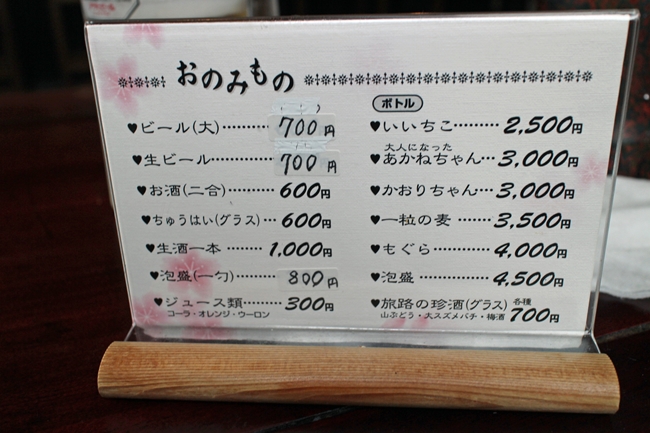 おのみもの
♥ビール(大)………… 700円
♥生ビール………… 700円
♥お酒(二合)………… 600円
♥ちゅうはい(グラス)… 600円
♥生酒一本 ……… 1,000円
♥泡盛(一勺)……… 800円
♥ジュース類……… 300円
コーラ・オレンジ・ウーロン
ボトル
♥いいちこ……… 2,500円
大人になった
♥あかねちゃん… 3,000円
♥かおりちゃん… 3,000円
♥一粒の麦……… 3,500円
♥もぐら………… 4,000円
♥泡盛………… 4,500円
♥旅路の珍酒(グラス) 各種 700円
山ぶどう・大スズメバチ・梅酒